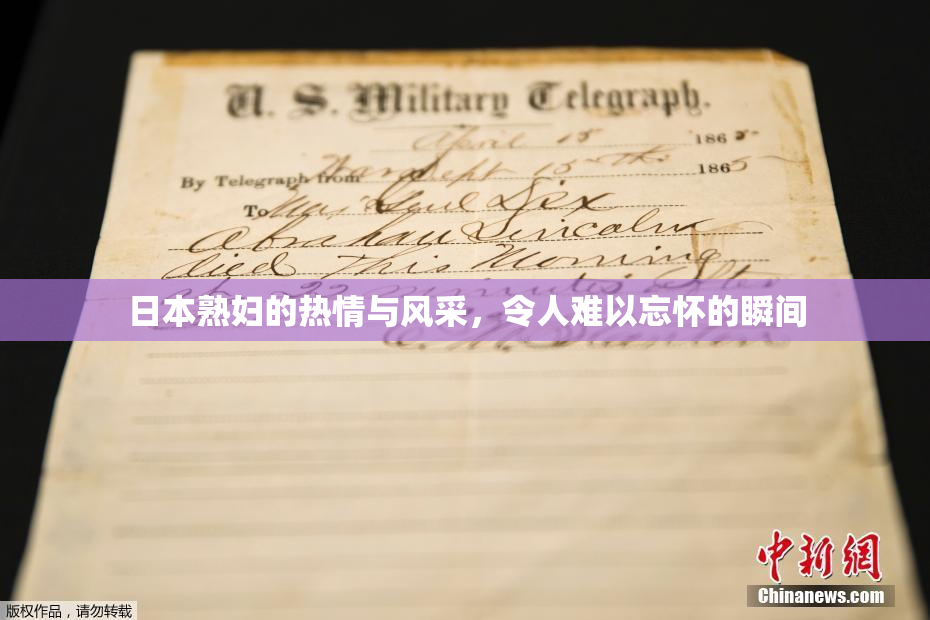 U. S. Military Telegraph.
April 15 1865
By Telegraph from War Dept 15th 1865
To Maj Genl Dix
Abraham Lincoln
died This Morning
at 22 minutes after
日本熟妇的热情与风采，令人难以忘怀的瞬间
E. M. Stanton
中新网
Chinanews.com
版权作品，请勿转载